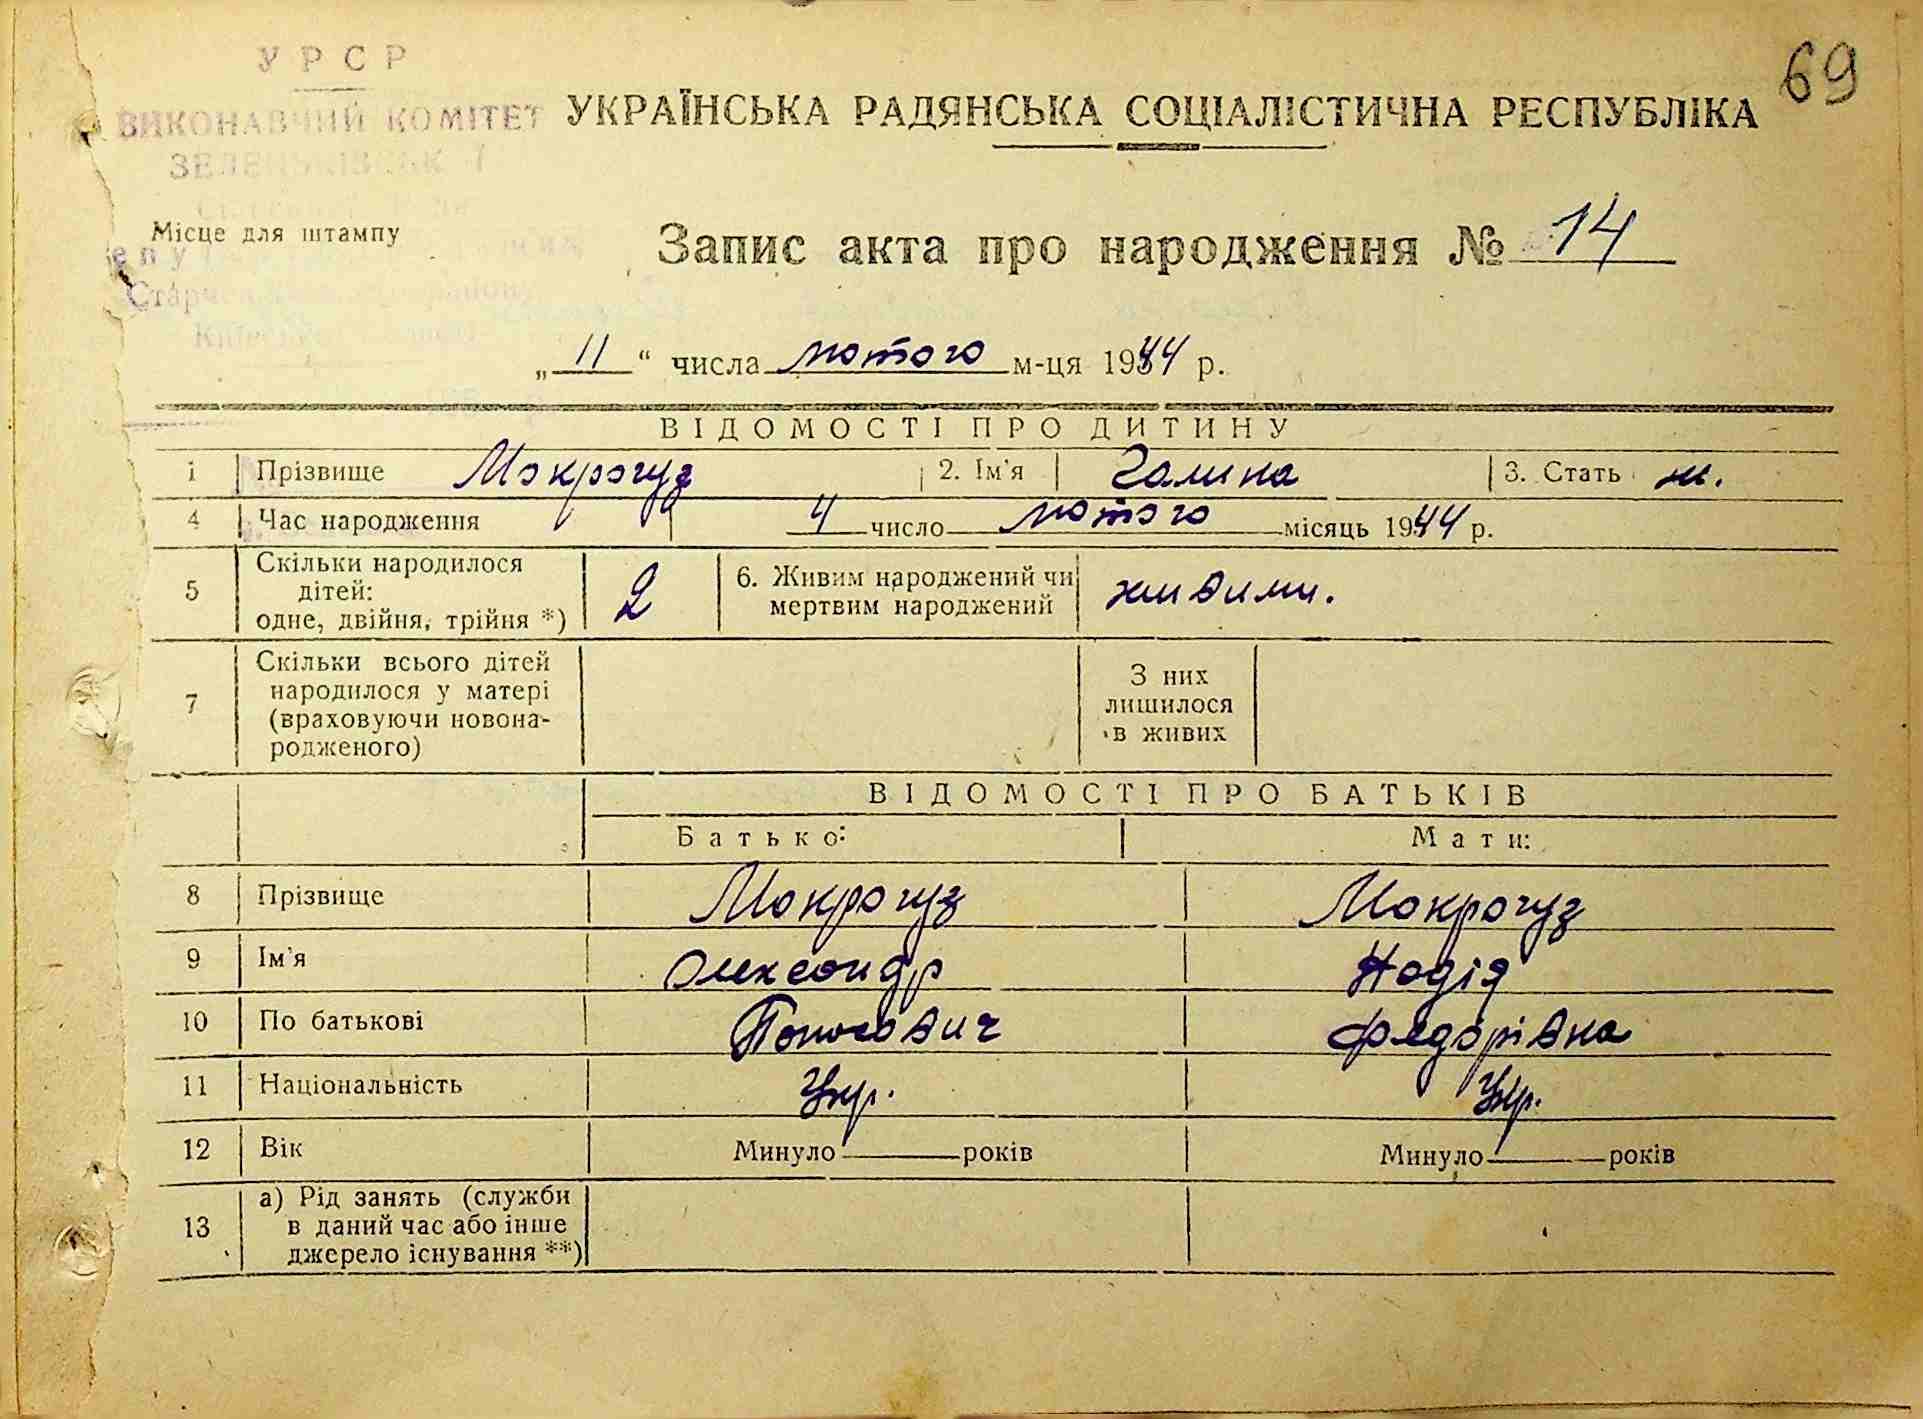 69
У Р С Р
ВИКОНАВЧИЙ КОМІТЕТ
УКРАЇНСЬКА РАДЯНСЬКА СОЦІАЛІСТИЧНА РЕСПУБЛІКА
Місце для штампу
Запис акта про народження № 14
„ 11 “ числа лютого м-ця 1944 р.
ВІДОМОСТІ ПРО ДИТИНУ
1 Прізвище Мокрогуз 2. Ім'я Галина 3. Стать ж.
4 Час народження 4 число лютого місяць 1944 р.
5 Скільки народилося
дітей:
одне, двійня, трійня *) 2
6. Живим народжений чи
мертвим народжений живими.
7 Скільки всього дітей
народилося у матері
(враховуючи новона-
родженого)
З них
лишилося
в живих
ВІДОМОСТІ ПРО БАТЬКІВ
Батько: Мати:
8 Прізвище Мокрогуз Мокрогуз
9 Ім'я Олександр Надія
10 По батькові Федорівна
11 Національність Укр. Укр.
12 Вік Минуло років Минуло років
13 а) Рід занять (служби
в даний час або інше
джерело існування **)